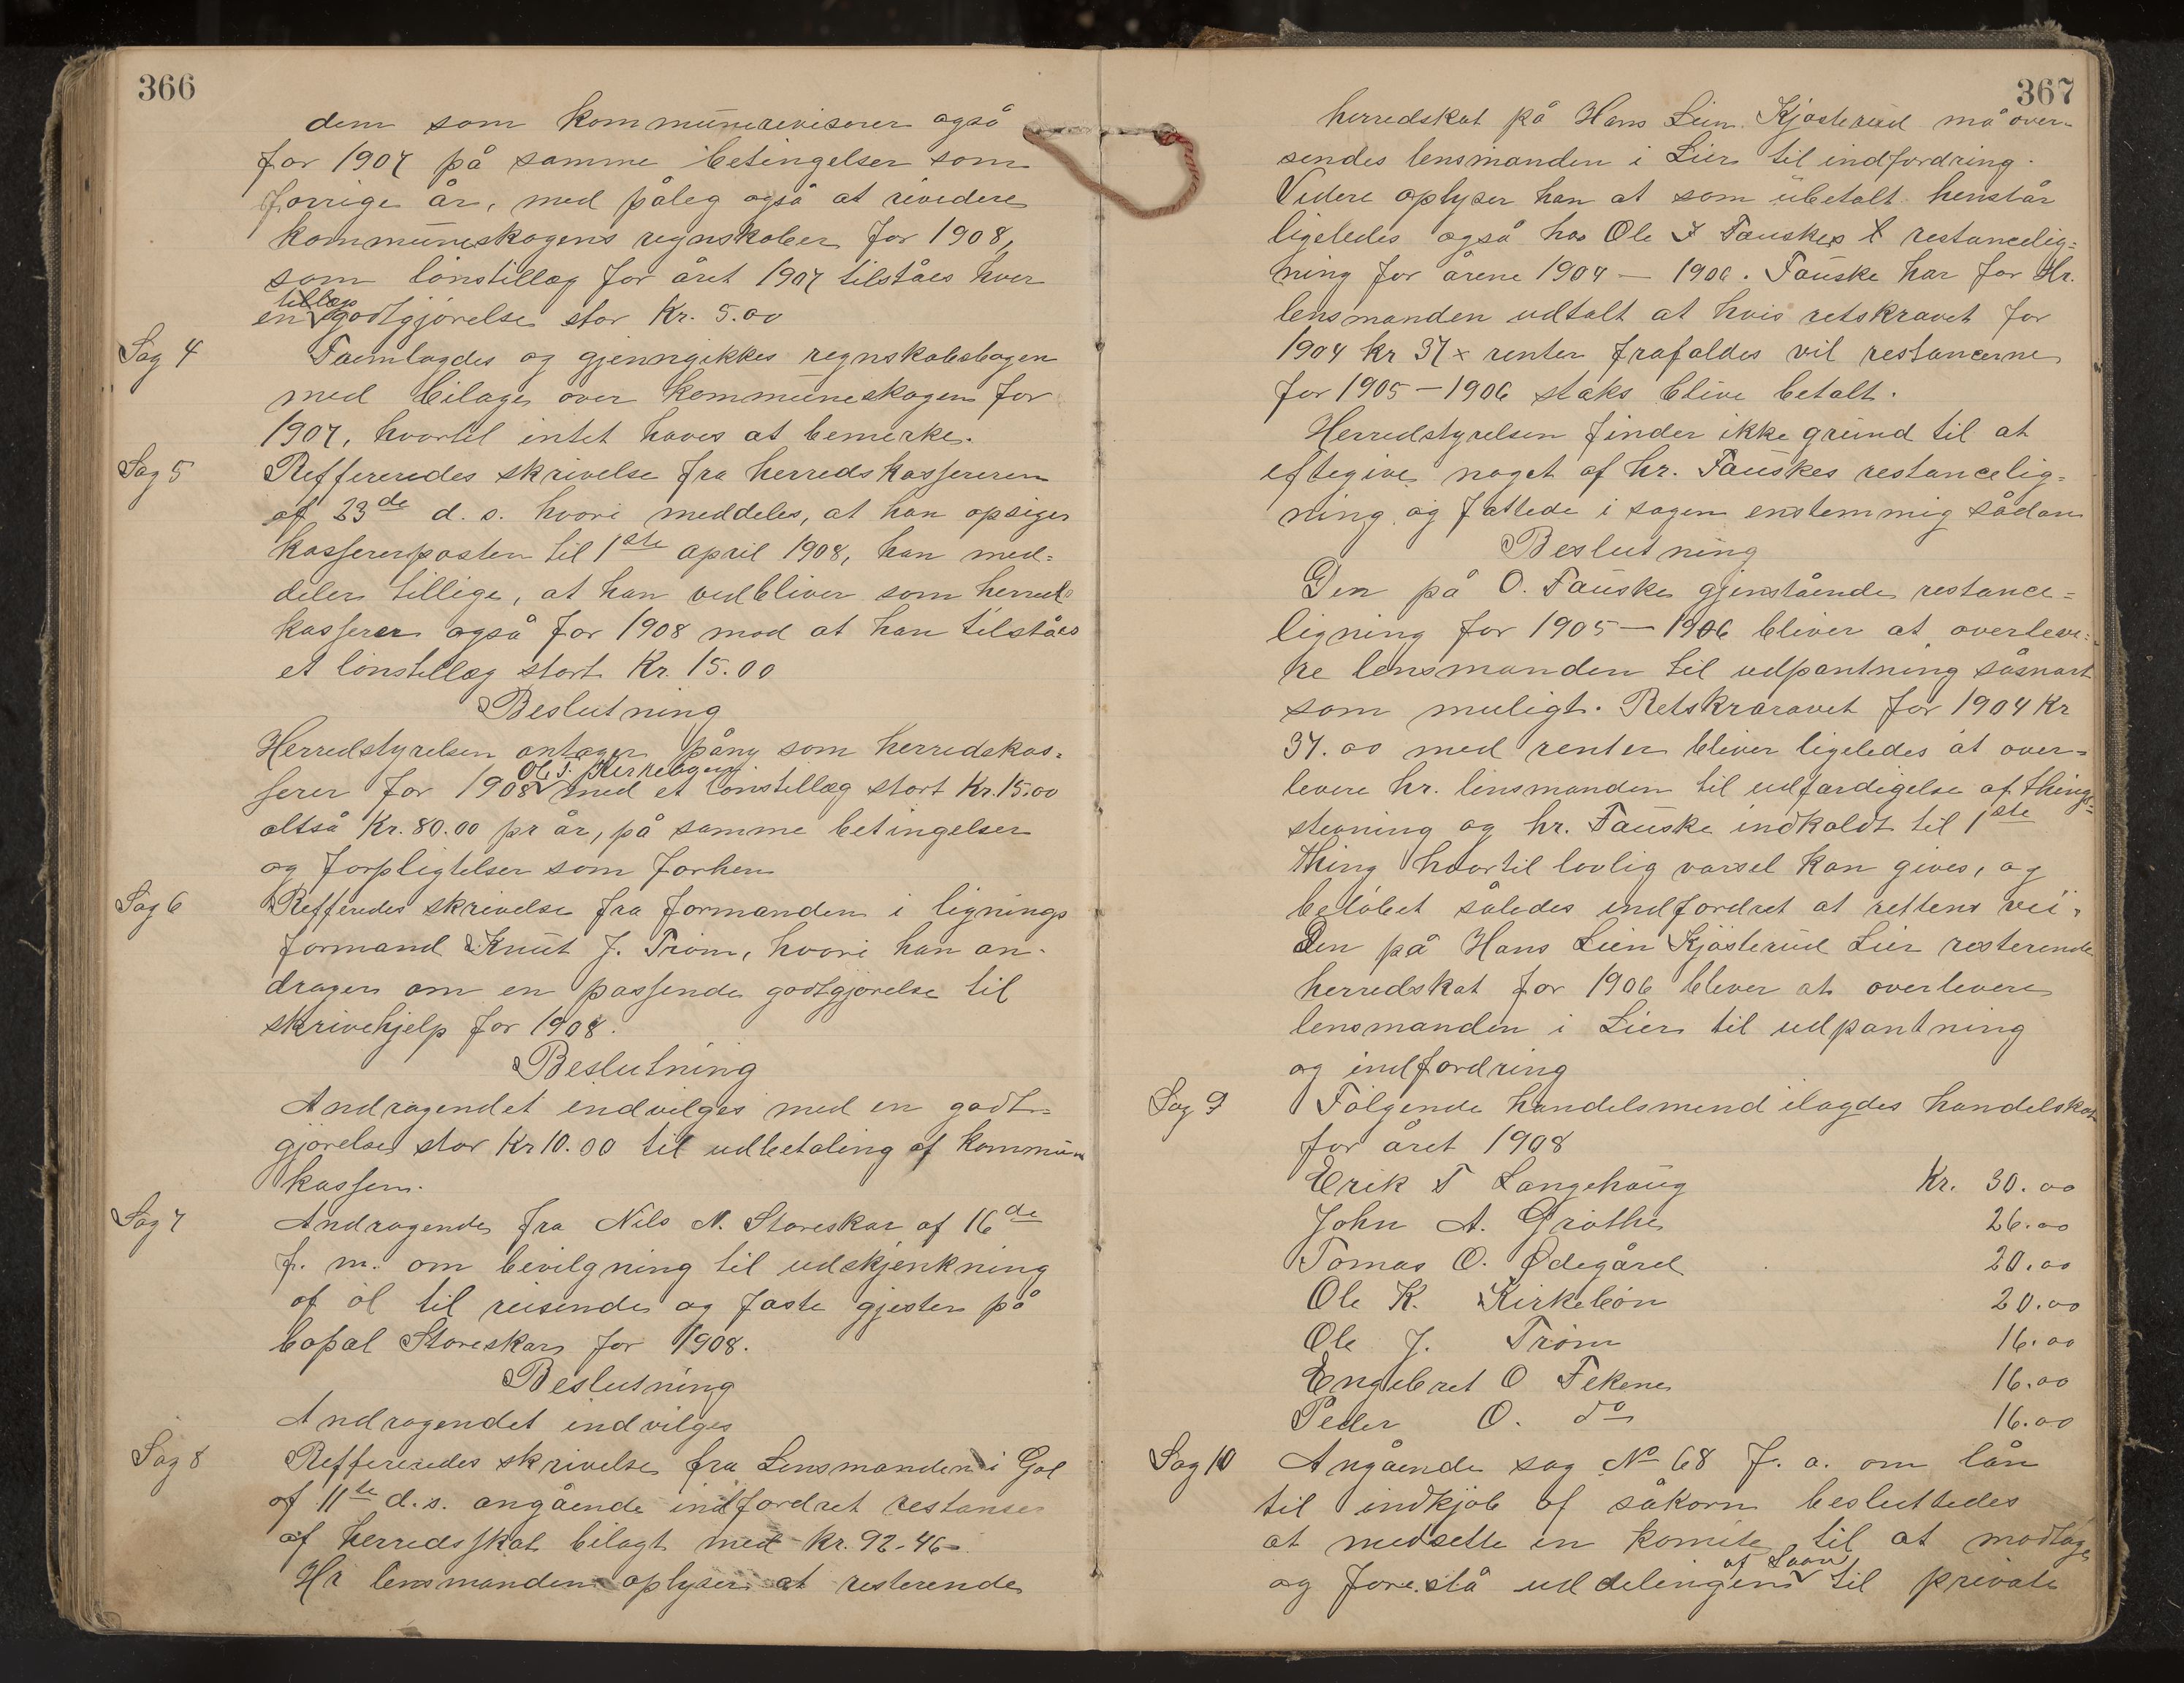 366
dem som kommunerevisorer også
for 1907 på samme betingelser som
forrige år, med pålæg også at revidere
kommuneskogens regnskaber for 1908,
som lönstillæg for året 1907 tilståes hver
tillægs
en godtgjörelse stor Kr. 5.00
Sag 4
Fremlagdes og gjennngikkes regnskabsbogen
med bilage over kommuneskogen for
1907, hvortil intet haves at bemerke.
Sag 5
Reffereredes skrivelse fra herredskassereren
af 23de d. s. hvori meddeles, at han opsiger
kassererposten til 1ste april 1908, han med=
deler tillige, at han vedbliver som herreds
kasserer også for 1908 mod at han tilståes
et lönstillæg stort Kr. 15.00
Beslutning
Herredstyrelsen antager påny som herredskas=
Ol S. Kirkebøen
serer for 1908 med et lönstillæg stort Kr. 15.00
altså Kr. 80.00 pr år, på samme betingelser
og forpligtelser som forhen
Sag 6
Refferedes skrivelse fra formanden i lignings
formand Knut J. Tröm, hvori han an-
drager om en passende godtgjörelse til
skrivehjelp for 1908.
Beslutning
Andragendet indvilges med en godt=
gjörelse stor Kr 10.00 til udbetaling af kommune
kassen.
Sag 7
Andragende fra Nils N. Storeskar af 16de
f. m. om bevilgning til udskjenkning
af öl til reisende og faste gjester på
bopæl Storeskar for 1908.
Beslutning
Andragendet indvilges
Sag 8
Reffereredes skrivelse fra Lensmanden i Gol
af 11te d.s. angående indfordret restanser
af herredsskat bilagt med kr. 92-46-
Hr lensmanden oplyser at resterende
367
herredskat på Hans Lien Kjösterud må over=
sendes lensmanden i Lier til indfordring.
Videre oplyser han at som ubetalt henstår
ligeledes også hos Ole Fauske restancelig=
ning for årene 1904 — 1906. Fauske har for Hr.
lensmanden udtalt at hvis retskravet for
1904 kr 37 x renter frafaldes vil restancerne
for 1905 — 1906 staks blive betalt.
Herredstyrelsen finder ikke grund til at
eftegive noget af hr. Fauskes restancelig=
ning og fattede i sagen enstemmig sådan
Beslutning
Den på O. Fauske gjenstående restance=
ligning for 1905 — 1906 bliver at overleve=
re lensmanden til udpantning såsnart
som muligt. Retskraravet for 1904 Kr
37.00 med renter bliver ligeledes at over=
levere hr. lensmanden til udfærdigelse af things=
stevning og hr. Fauske indkaldt til 1ste
thing hvortil lovlig varsel kan gives, og
belöbet således indfordret at rettens vei.
Den på Hans Lien Kjösterud Lier resterende
herredskat for 1906 bliver at overlevere
lensmanden i Lier til udpantning
og indfordring
Sag 9
Fölgende handelsmend ilagdes handelskat
for året 1908
Erik T Langehaug Kr. 30.00
John A. Gröthe 26.00
Tomas O. Ødegård 20.00
Ole K. Kirkebön 20.00
Ole J. Tröm 16.00
Engebret O Fekene 16.00
Peder O. do 16.00
Sag 10
Angående sag No 68 f. a. om lån
til indkjöb af såkorn besluttedes
at nedsette en komite til at modtage
af Laan
og forestå uddelingen til private